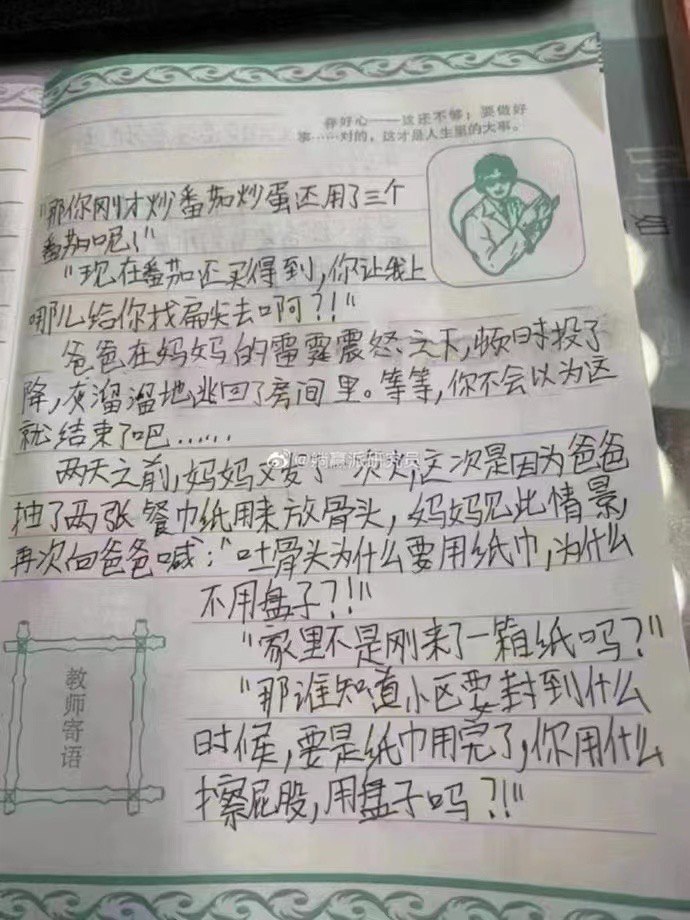 存好心——这还不够；要做好
事……对的，这才是人生里的大事。
"那你刚才炒番茄炒蛋还用了三个
番茄呢！"
"现在番茄还买得到，你让我上
哪儿给你找扁尖去啊？！"
爸爸在妈妈的雷霆震怒之下，顿时投了
降，灰溜溜地逃回了房间里。等等，你不会以为这
就结束了吧……
两天之前，妈妈又发了一次火，这次是因为爸爸
抽了两张餐巾纸用来放骨头，妈妈见此情景，
再次向爸爸喊："吐骨头为什么要用纸巾，为什么
不用盘子？！"
"家里不是刚来了一箱纸吗？"
"那谁知道小区要封到什么
时候，要是纸巾用完了，你用什么
擦屁股，用盘子吗？！"
教师寄语
@躺赢派研究员